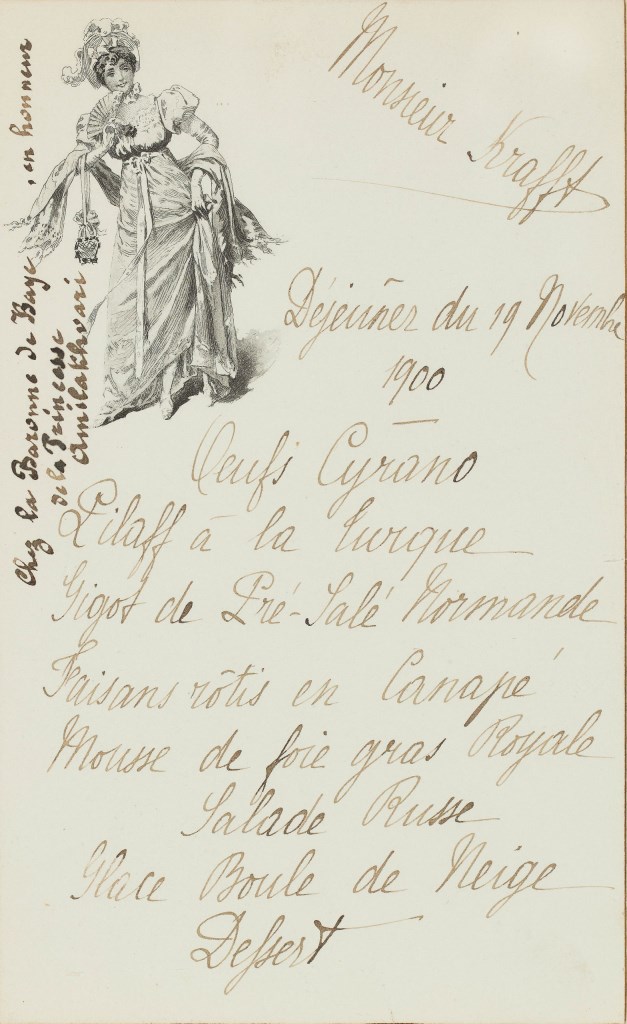 Monsieur Krafft
Chez la Baronne de Baye, en honneur
de la Princesse
Amilakhvari
Déjeuner du 19 Novembre
1900
Oeufs Cyrano
Pilaff à la Turque
Gigot de Pré-Salé Normande
Faisans rôtis en Canapé
Mousse de foie gras Royale
Salade Russe
Glace Boule de Neige
Dessert